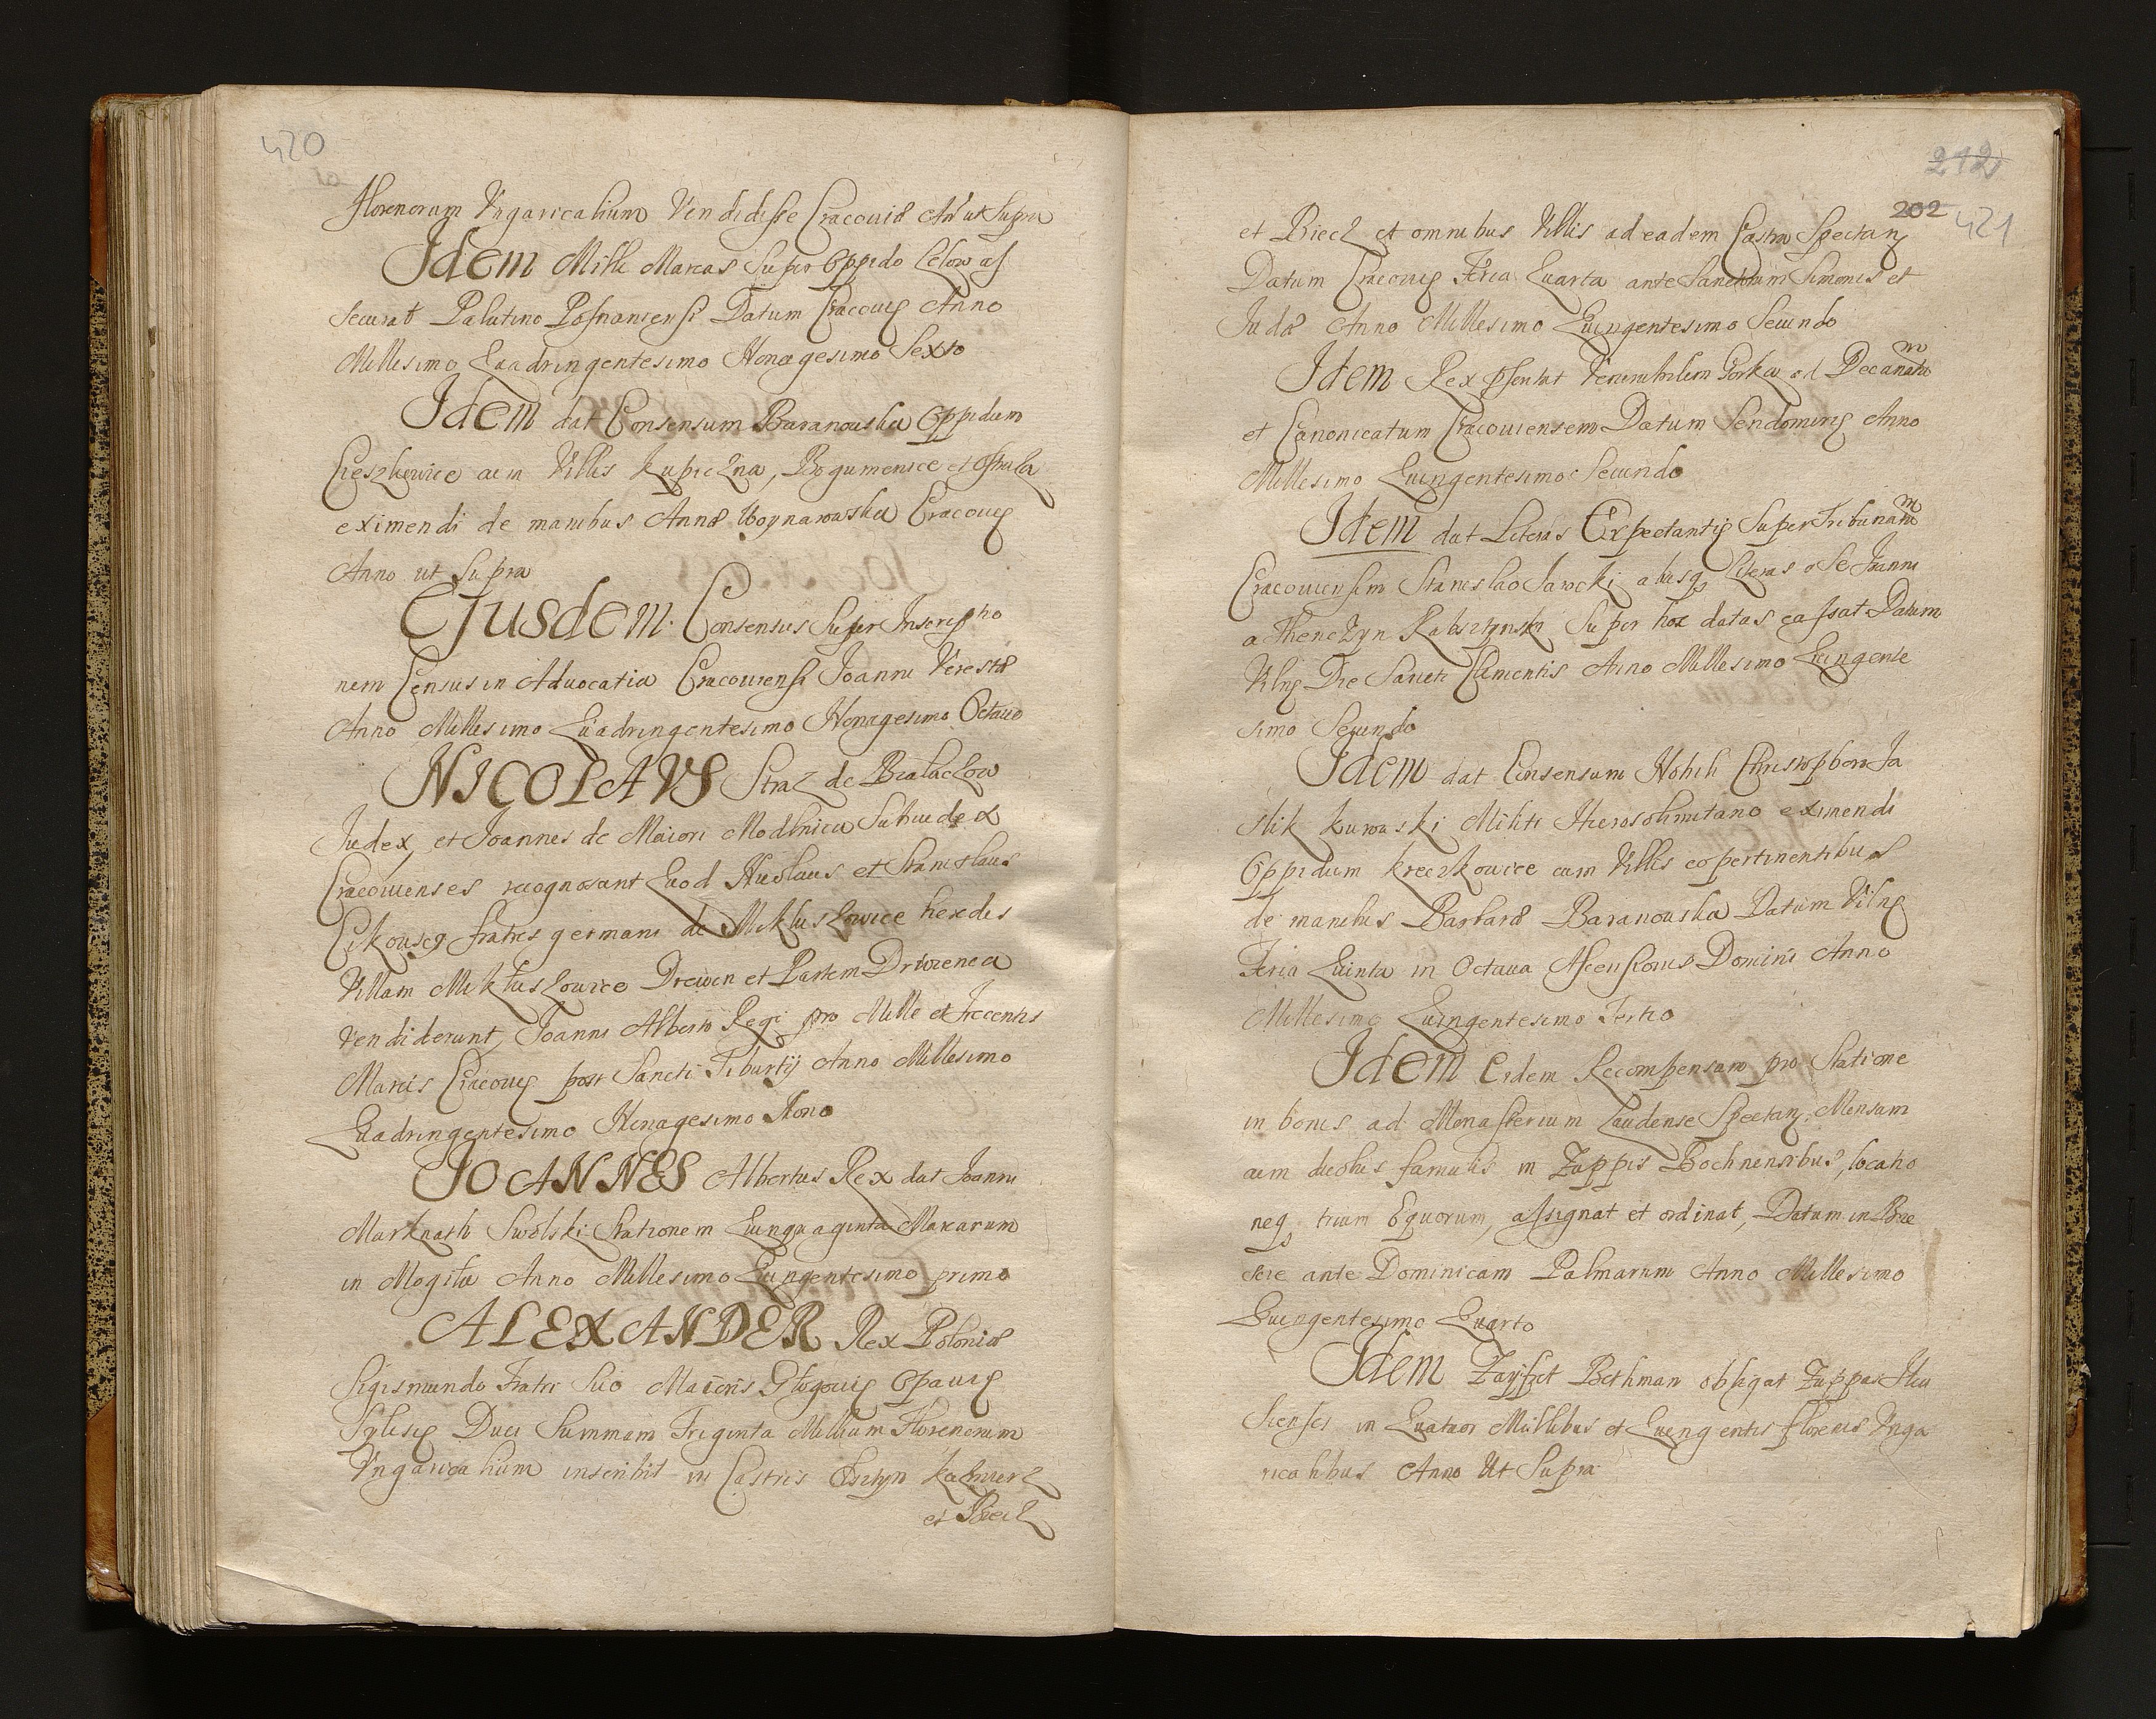 420
florenorum Vngaricalium Vendidisse Cracouiæ An ut Supra
Idem Mille Marcas Super Oppido Lelow as
securat Palatino Posnaniensi Datum Cracouię Anno
Millesimo Quadringentesimo Nonagesimo Sexto
Idem dat Consensum Baranouska Oppidum
Cieszkowice cum Villis Kupiczna, Bogumenice et
eximendi de manibus Annæ Woynarowska Cracouię
Anno ut Supra
Ejusdem Consensus Super Inscriptio
nem Census in Aduocatia Cracouiensi Joanni
Anno Millesimo Quadringentesimo Nonagesimo Octauo
NICOLAVS Straz de Bialaczow
Judex, et Joannes de Maiori Modlnica Subiudex
Cracouienses recognoscunt Quod Nicolaus et Stanislaus
fratres germani de Mikluszowice heredes
Villam Mikluszowice Drewin et Partem Drwienca
Vendiderunt, Joanni Alberto Regi pro Mille et Trecentis
Marcis Cracouię post Sancti Tiburtij Anno Millesimo
Quadringentesimo Nonagesimo Nono
IOANNES Albertus Rex dat Joanni
Swolski Stationem Quinquaginta Marcarum
in Mogila Anno Millesimo Quingentesimo primo
ALEXANDER Rex Poloniæ
Sigismundo Fratri Suo Maioris Glogouię Opauię
Sylesię Duci Summam Triginta Millium Florenorum
Vngaricalium inscribit in Castris Olsztyn Kazmierz
et Biecz
212
202
421
et Biecz et omnibus Villis ad eadem Castra Spectan
Datum Cracouię Feria Quarta ante Sanctorum Simonis et
Judæ Anno Millesimo Quingentesimo Secundo
Idem Rex pſentat Venerabilem Gorka ad Decanatum
et Canonicatum Cracouiensem Datum Sendomirię Anno
Millesimo Quingentesimo Secundo
Idem dat Literas Expectantię Super Tribunatum
Cracouiensem Stanislao Jarocki aliasq Literas a Se Joanni
a Thenczyn Rabsztynski Super hoc datas cassat Datum
Vilnę Die Sancti Clementis Anno Millesimo Quingente
simo Secundo
Idem dat Consensum Nobili Christophoro Ja
slik Kurowski Militi Hierosolimitano eximendi
Oppidum Kreczkowice cum Villis eo pertinentibus
de manibus Barbaræ Baranouska Datum Vilnę
Feria Quinta in Octaua Ascensionis Domini Anno
Millesimo Quingentesimo Tertio
Idem Eidem Recompensam pro Statione
in bonis ad Monasterium Laudense Spectan, Mensam
cum duobus famulis in Zuppis Bochnensibus, locatio
neq trium Equorum, assignat et ordinat, Datum in Brze
scie ante Dominicam Palmarum Anno Millesimo
Quingentesimo Quarto
Idem Zayfret Bethman obligat Zuppas
in Quatuor Millibus et Quingentis florenis Vnga
ricalibus Anno Ut Supra